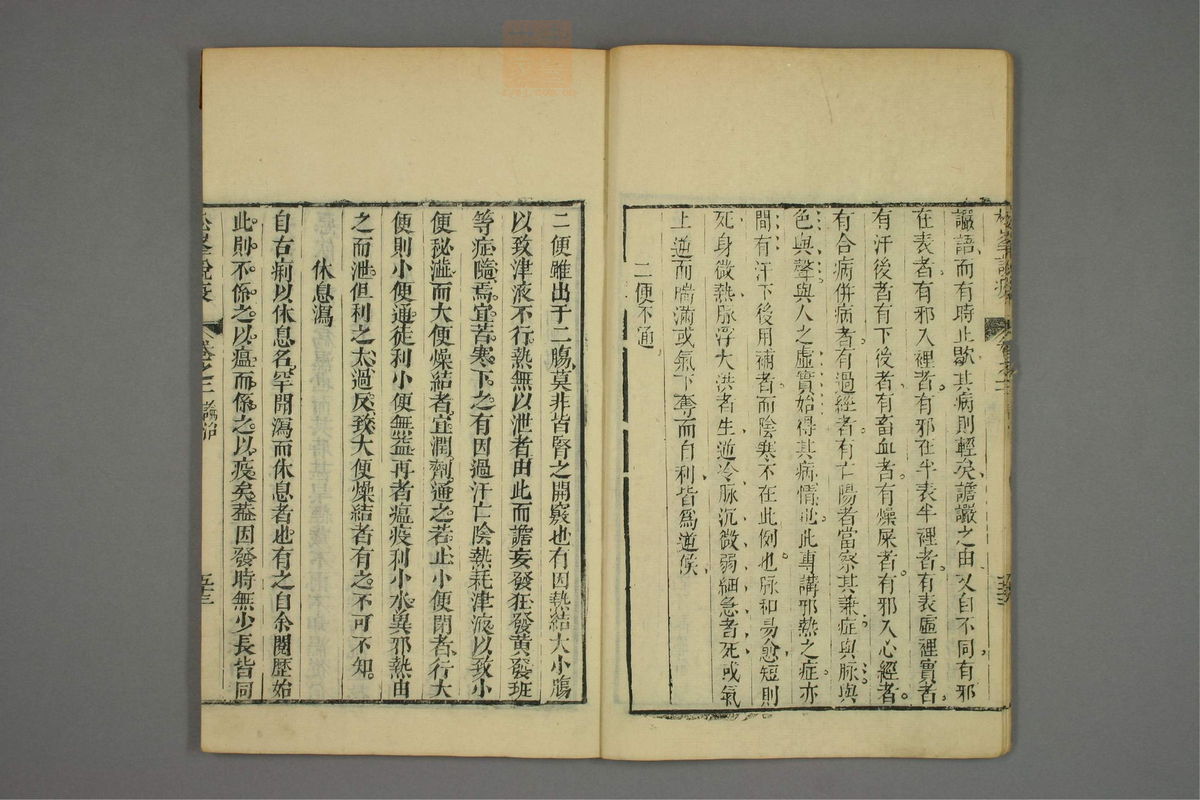 譫語而有時止歇其病則輕矣譫讝之由又自不同有邪
在表者有邪入裡者有邪在半表半裡者有表虛裡實者
有汗後者有下後者有畜血者有燥屎者有邪入心經者
有合病併病者有過經者有亡陽者當察其兼症與脉與
色與聲與人之虛實始得其病情也此專講邪熱之症亦
間有汗下後用補者而陰寒不在此例也脉和易愈短則
死身微熱脉浮大洪者生逆冷脉沉微弱細急者死或氣
上逆而喘滿或氣下奪而自利皆爲逆候
二便不通
二便雖出于二腸莫非皆腎之開竅也有因熱結大小腸
以致津液不行熱無以泄者由此而譫妄發狂發黃發班
等症隨焉宜苦寒下之有因過汗亡陰熱耗津液以致小
便秘澁而大便燥結者宜潤劑通之若止小便閉者行大
便則小便通徒利小便無益再者瘟疫利小水異邪熱由
之而泄但利之太過反致大便燥結者有之不可不知
休息瀉
自古痢以休息名罕聞瀉而休息者也有之自余閱歷始
此則不係之以瘟而係之以疫矣葢因發時無少長皆同
松峯說疫
卷之三
五三